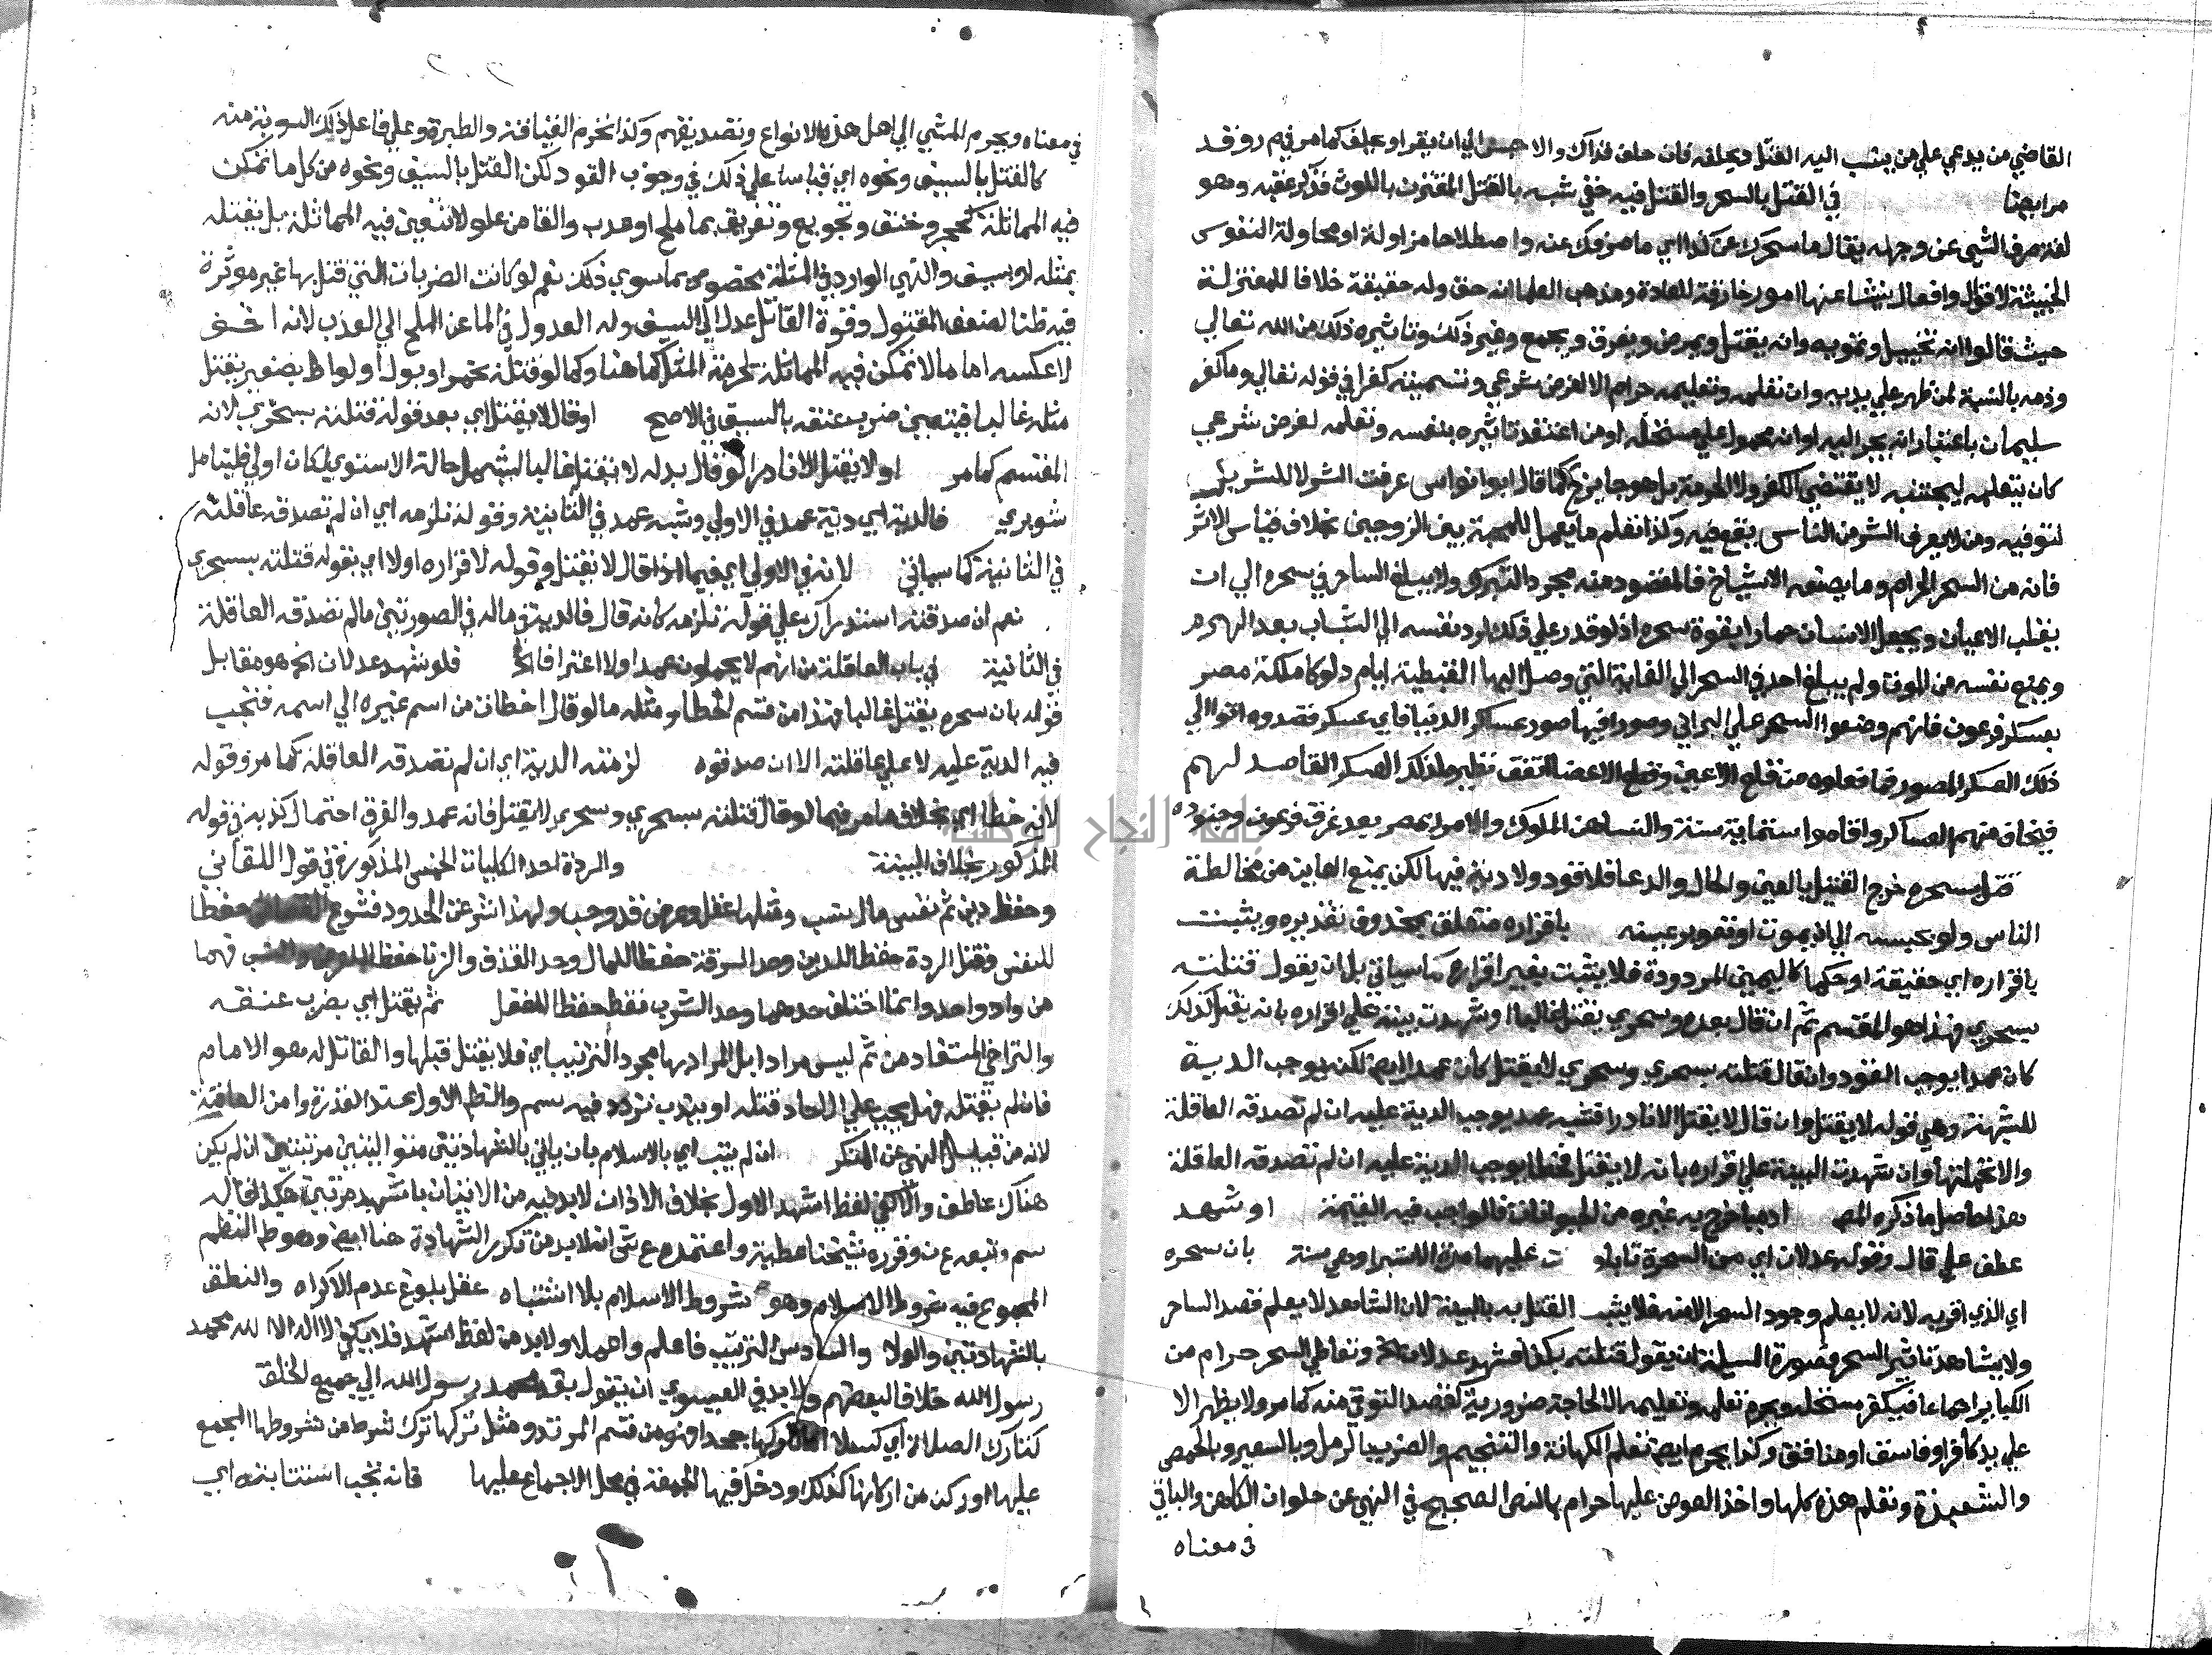 القاضي من يدعي علي من ينسب اليه القتل ويحلفه فان حلف فذاك والا حبس الي ان يقر او يحلف كما مر في م ر وقد
مر ايضا في القتل بالسحر والقتل فيه خفي شبه بالقتل المقترن باللوث فذكر عقبه وهو
لغة صرف الشي عن وجهه يقال ما سحرك عن كذا اي ما صرفك عنه واصطلاحا مزاولة او محاولة النفوس
الخبيثة لاقوال وافعال ينشا عنها امور خارقة للعادة ومذهب العلما انه حق وله حقيقة خلافا للمعتزلة
حيث قالوا انه تخييل وتمويه وانه يقتل ويمرض ويفرق ويجمع وغير ذلك وتاثيره ذلك من الله تعالي
وذمه بالنسبة لمن ظهر علي يديه وان تعلمه وتعليمه حرام الا لغرض شرعي وتسميته كفرا في قوله تعالي وما كفر
سليمان باعتبار انه يجر اليه او انه محمول علي مستحله او من اعتقد تاثيره بنفسه وتعلمه لغرض شرعي
كان يتعلمه ليجتنبه لا يقتضي الكفر ولا الحرمة بل هو جايز كما قال ابو نواس عرفت الشر لا للشر
لتوقيه ومن لا يعرف الشر من الناس يقع فيه وكذا تعلم ما يعمل للمحبة بين الزوجين بخلاف
فانه من السحر الحرام وما يصنعه الاشياخ فالمقصود منه مجرد التبرك ولا يبلغ الساحر في سحره الي ان
يقلب الاعيان ويجعل الانسان حمارا بقوة سحره اذ لو قدر علي ذلك لرد نفسه الي الشباب بعد الهرم
ويمنع نفسه من الموت ولم يبلغ احد في السحر الي الغاية التي وصل اليها القبطية ايام دلوكا ملكة مصر
بعسكر فرعون فانهم وضعوا السحر علي البرابي وصوروا فيها صور عساكر الدنيا فاي عسكر قصدوه اتوا الي
ذلك العسكر المصور فما فعلوه من قلع الاعين وقطع الاعضا اتفق نظيره لذلك العسكر القاصد لهم
فيخاف منهم العساكر واقاموا ستماية سنة والنسا هن الملوك والامرا بمصر بعد غرق فرعون وجنوده
قتل بسحره خرج القتل بالعين والحال والدعا فلا قود ولا دية فيها لكن يمنع العاين من مخالطة
الناس ولو بحبسه الي ان يموت باقراره متعلق بمحذوف تقديره ويثبت
باقراره اي حقيقة او حكما كاليمين المردودة فلا يثبت بغير اقراره كما سياتي بل ان يقول قتلته
بسحري فهذا هو المقسم ثم ان قال بعده وسحري يقتل غالبا او شهدت بينة علي اقراره بانه يقتل كذلك
كان عمدا يوجب القود وان قال قتلته بسحري وسحري لا يقتل كان عمدا ايضا لكن يوجب الدية
للشبهة وهي قوله لا يقتل وان قال لا يقتل الا نادرا فشبه عمد يوجب الدية عليه ان لم تصدقه العاقلة
والا تحملتها وان شهدت البينة علي اقراره بانه لا يقتل فخطا يوجب الدية عليه ان لم تصدقه العاقلة
هذا حاصل ما ذكره المص ادميا خرج به غيره من الحيوانات فالواجب فيه القيمة او شهد
عطف علي قال وقوله عدلان اي من السحرة تابا ت عليهما مدة الاستبرا وهي سنة بان سحره
اي الذي اقر به لانه لا يعلم وجود السحر الا منه فلا يثبت القتل به بالبينة لان الشاهد لا يعلم قصد الساحر
ولا يشاهد تاثير السحر فصورة المسيلة ان يقول قتلته بكذا فشهد عدلان الخ وتعاطي السحر حرام من
الكباير اجماعا فيكفر مستحله ويحرم تعلمه وتعليمه الا لحاجة ضرورية كقصد التوقي منه كما مر ولا يظهر الا
علي يد كافر او فاسق او منافق وكذا يحرم ايضا تعلم الكهانة والتنجيم والضرب بالرمل وبالشعير وبالحمص
والشعبذة وتعلم هذه كلها واخذ العوض عليها حرام بالنص الصحيح في النهي عن حلوان الكاهن والباقي
في معناه
في معناه ويحرم المشي الي اهل هذه الانواع وتصديقهم وكذا تحرم القيافة والطيرة وعلي فاعل ذلك التوبة منه
كالقتل بالسيف ونحوه اي قياسا علي ذلك في وجوب القود لكن القتل بالسيف ونحوه من كل ما تمكن
فيه المماثلة كحجر وخنق وتجويع وتغريق بما ملح او عذب والقا من علو لا تتعين فيه المماثلة بل يقتله
بمثله او بسيف والنهي الوارد في المثلة مخصوص بما سوي ذلك نعم لو كانت الضربات التي قتل بها غير موثرة
فيه ظنا لضعف المقتول وقوة القاتل عدل الي السيف وله العدول في الما عن الملح الي العذب لانه اخف
لا عكسه اما ما لا تمكن فيه المماثلة لحرمة المثل كما هنا وكما لو قتله بخمر او بول او لواط بصغير يقتل
مثله غالبا فيتعين ضرب عنقه بالسيف في الاصح او قال لا يقتل اي بعد قوله قتلته بسحري لانه
المقسم كما مر او لا يقتل الا نادرا لو قال بدله لا يقتل غالبا ليشمل حالة الاستوي لكان اولي فليتامل
شوبري فالدية اي دية عمد في الاولي وشبه عمد في الثانية وقوله تلزمه اي ان لم تصدقه عاقلته
في الثانية كما سياتي لانه في الاولي اي فيما اذا قال لا يقتل وقوله لاقراره اولا اي بقوله قتلته بسحري
نعم ان صدقته استدراك علي قوله تلزمه كانه قال فالدية في ماله في الصورتين ما لم تصدقه العاقلة
في الثانية في باب العاقلة من انهم لا يحملون عمدا ولا اعترافا الخ فلو شهد عدلان الخ هو مقابل
قوله بان سحره يقتل غالبا فهذا من قسم الخطا ومثله ما لو قال اخطات من اسم غيره الي اسمه فتجب
فيه الدية عليه لا علي عاقلته الا ان صدقوه لزمته الدية اي ان لم تصدقه العاقلة كما مر وقوله
لانه خطا اي بخلاف ما مر فيما لو قال قتلته بسحري وسحري لا يقتل فانه عمد والفرق احتمال كذبه في قوله
المذكور بخلاف البينة والردة احد الكليات الخمس المذكورة في قول اللقاني
وحفظ دين ثم نفس مال نسب ومثلها عقل وعرض قد وجب ولهذا شرعت الحدود فشرع القصاص حفظا
للنفس وقتل الردة حفظا للدين وحد السرقة حفظا للمال وحد القذف والزنا حفظا للعرض والنسب فهما
من واد واحد وانما اختلف حدهما وحد الشرب فقط حفظا للعقل ثم يقتل اي بضرب عنقه
والتراخي المستفاد من ثم ليس مرادا بل المراد بها مجرد الترتيب اي فلا يقتل قبلها والقاتل له هو الامام
فان لم يقتله فهل يجب علي الاحاد قتله او يندب تردد فيه سم والظاهر الاول عند القدرة وامن العاقبة
لانه من قبيل النهي عن المنكر ان لم يتب اي بالاسلام بان ياتي بالشهادتين متواليتين مرتبتين ان لم يكن
هناك عاطف والا كفي لفظ اشهد الاول بخلاف الاذان لا بد فيه من الاتيان باشهد مرتين هكذا قاله
سم وتبعه ع ن وقرره شيخنا عطية واعتمده ع ش انه لا بد من تكرر الشهادة هنا ايضا وهو ظاهر النظم
المجموع فيه شروط الاسلام وهو شروط الاسلام بلا اشتباه عقل بلوغ عدم الاكراه والنطق
بالشهادتين والولا والسادس الترتيب فاعلم واعملا ولا بد من لفظ اشهد فلا يكفي لا اله الا الله محمد
رسول الله خلافا لبعضهم ولا بد في العيسوي ان يقول بعد محمد رسول الله الي جميع الخلق
كتارك الصلاة اي كسلا اما لو تركها جحدا فهو من قسم المرتد ومثل تركها ترك شرط من شروطها المجمع
عليها او ركن من اركانها كذلك ودخل فيها الجمعة في محل الاجماع عليها فانه تجب استتابته اي
جامعة النجاح الوطنية